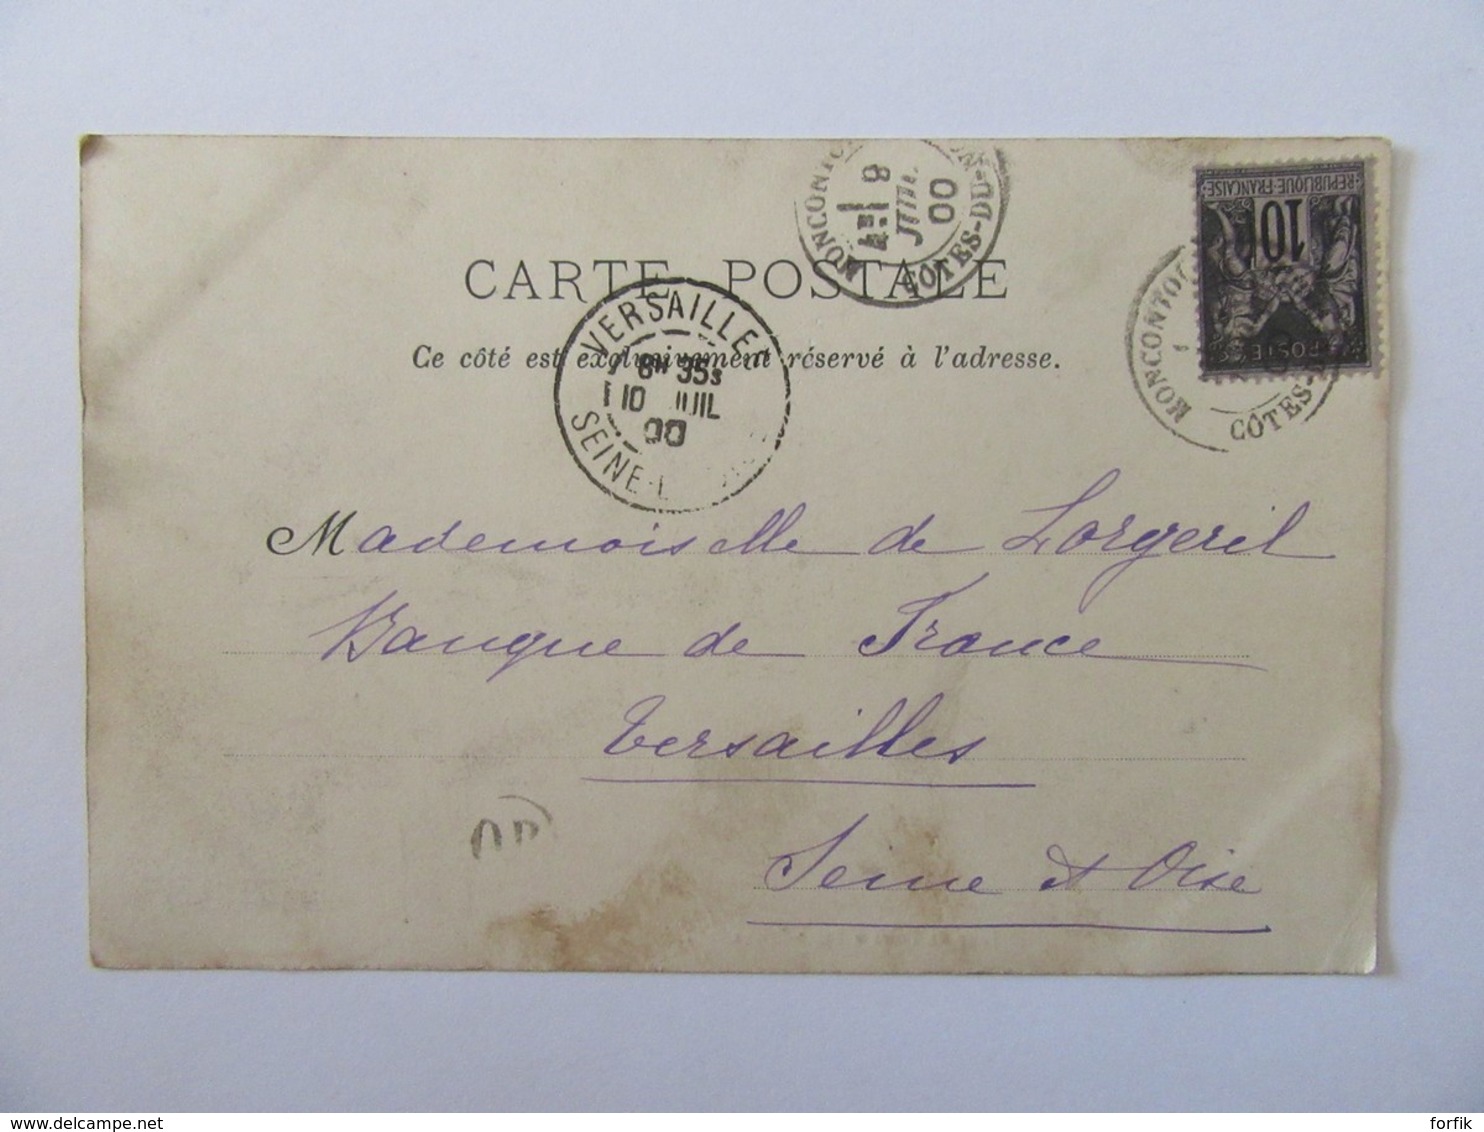 RÉPUBLIQUE-FRANÇAISE
10
POSTE
MONCONTO
CÔTES-D
MONCONTO
CÔTES-DU-NORD
8
JUIL
00
CARTE POSTALE
Ce côté est exclusivement réservé à l'adresse.
VERSAILLES
8H 35S
10 JUIL
00
SEINE-
Mademoiselle de Lorgeril
Banque de France
Versailles
Seine et Oise
OR
forfik